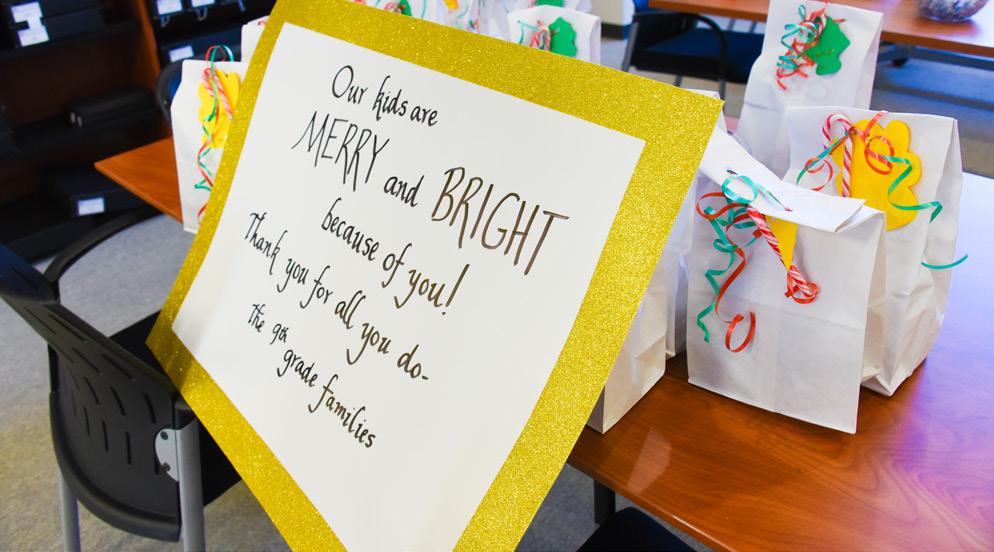 Our kids are
MERRY and BRIGHT
because of you!
Thank you for all you do-
The 9th
grade families